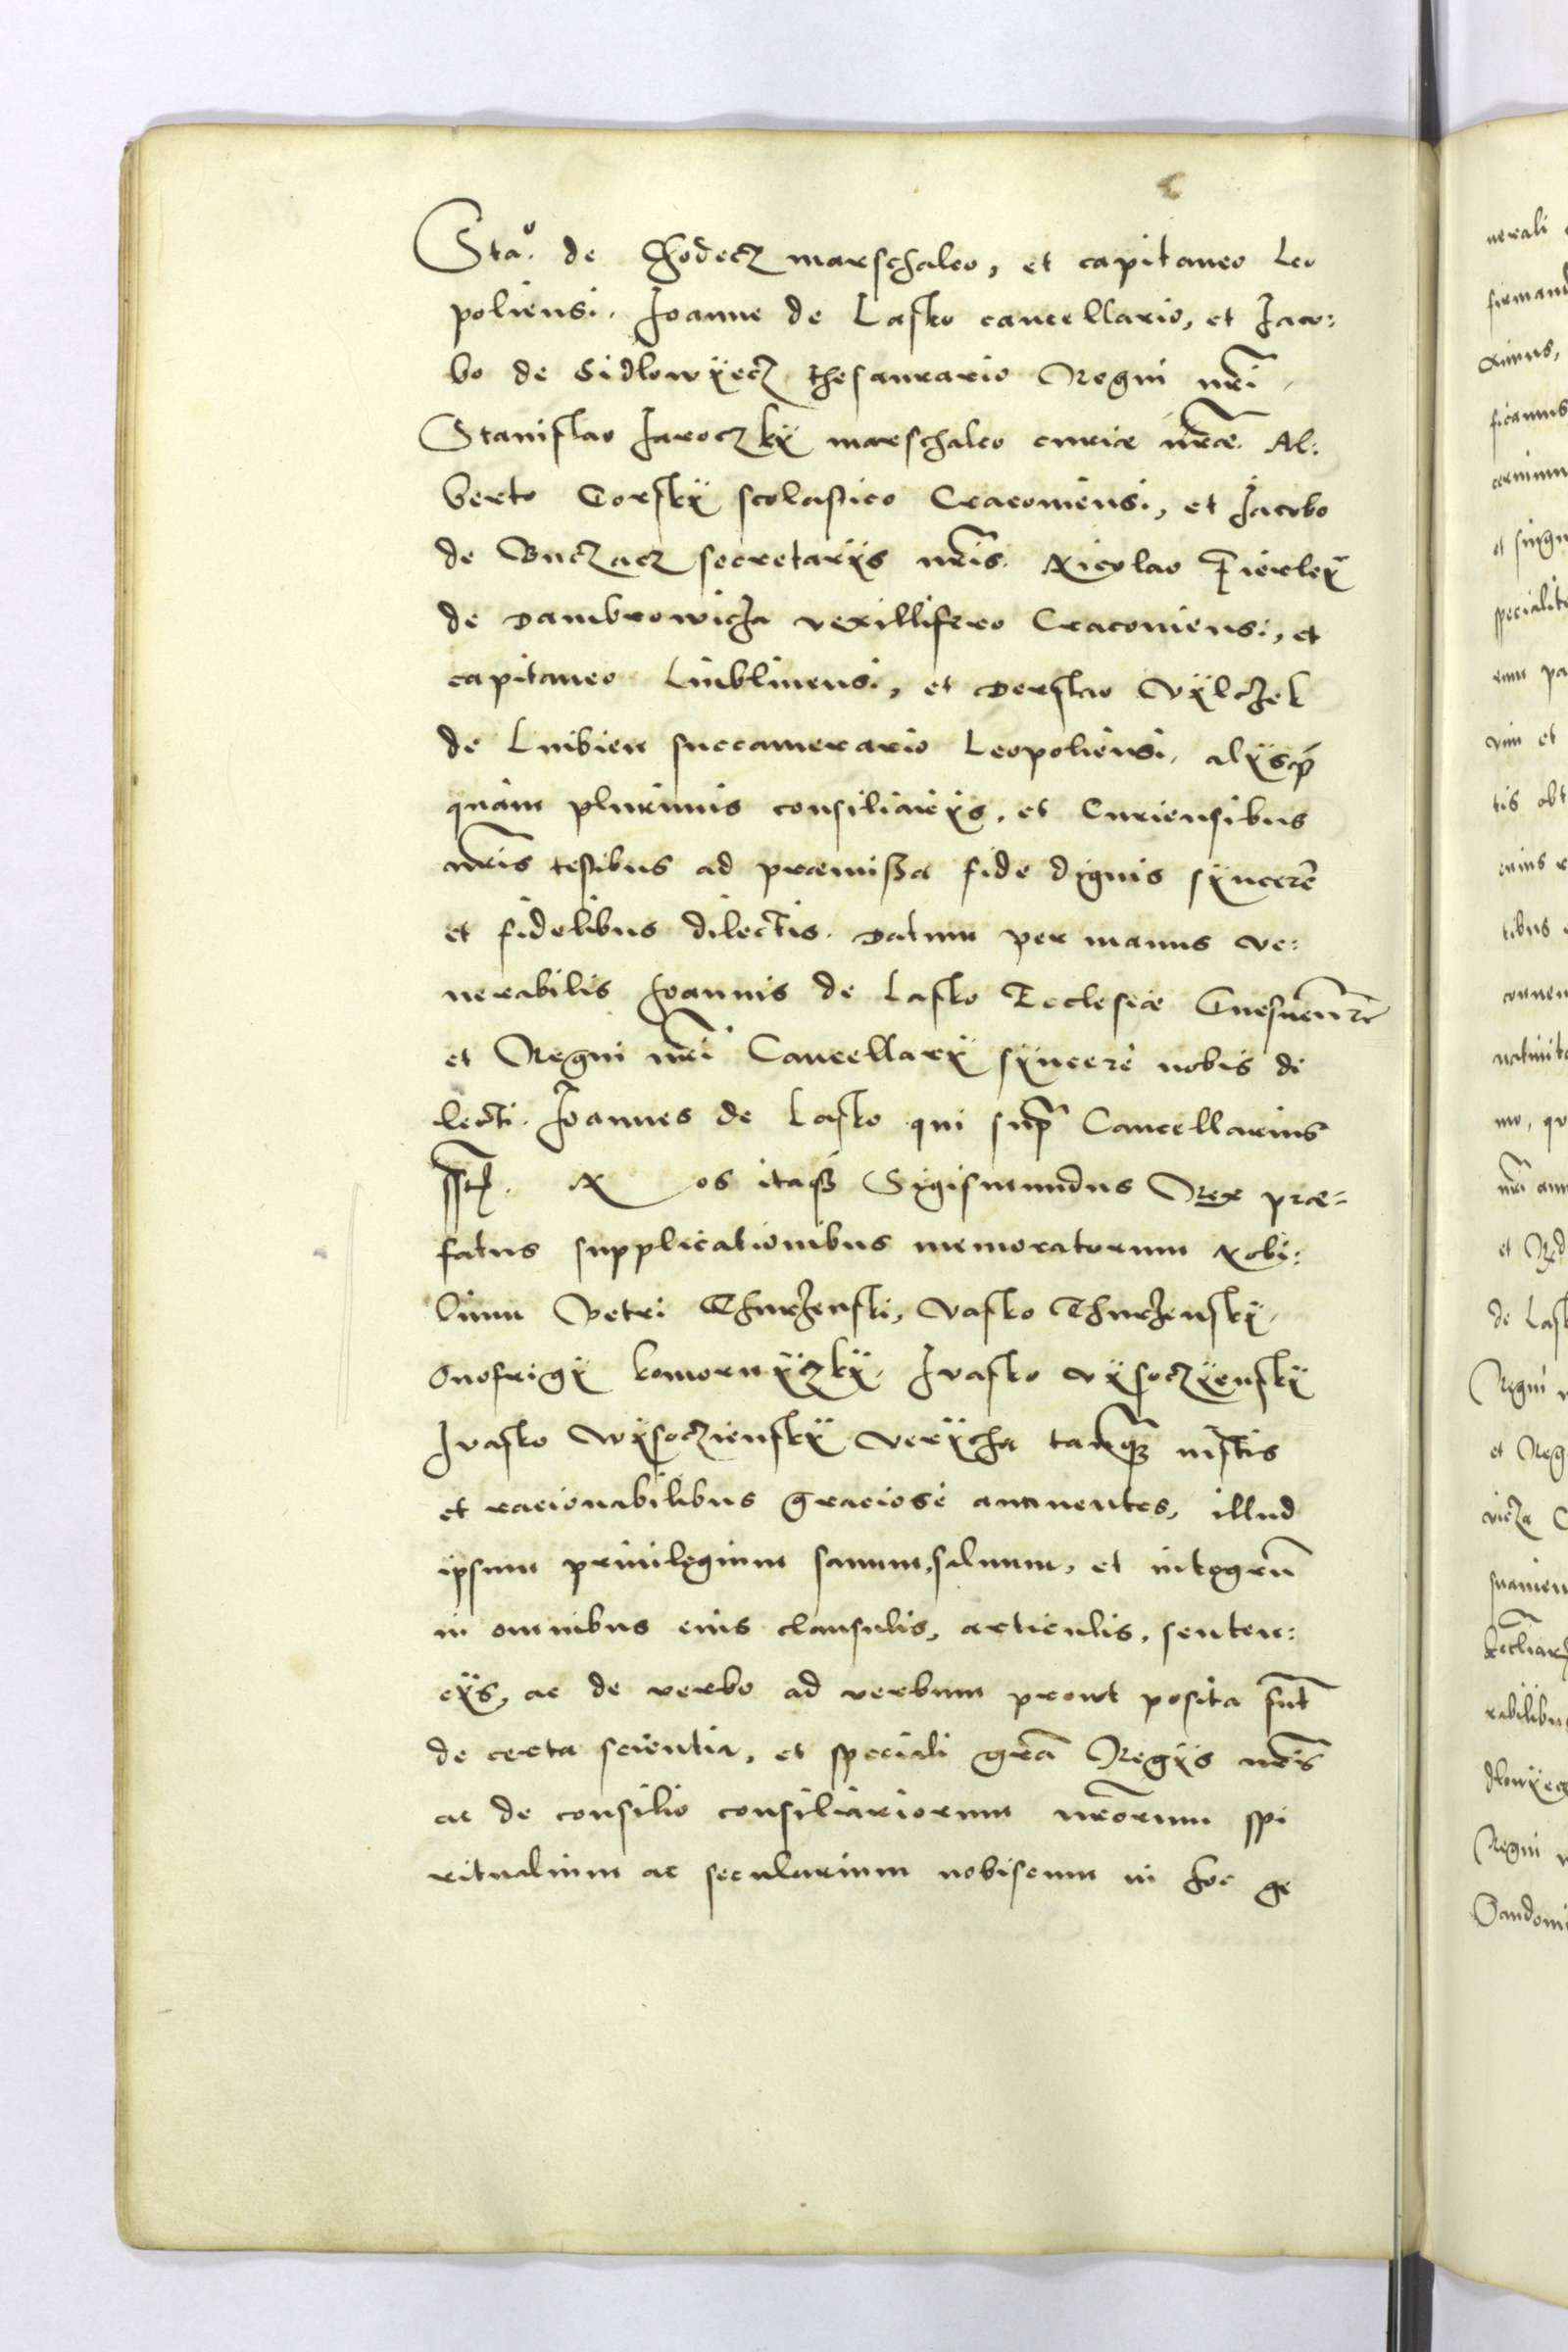 Stao. de Chodecz marschalco, et capitaneo Leo
poliensi. Joanne de Lasko cancellario, et Jaco:
bo de Sidlowÿecz thesaurario Regni nr̃i,
Stanislao Jaroczkÿ marschalco curiæ nr̃æ. Al:
berto Gorskÿ scolastico Cracoviensi, et Jacobo
de Buczacz secretariis nr̃is. Nicolao Fierleÿ
de Dambrowicza vexillifero Cracoviensi, et
capitaneo Lublinensi, et Derslao Vÿlczek
de Lubien succamerario Leopoliensi, alÿsq́
quàm plurimis consiliarÿs, et Curiensibus
nr̃is testibus ad præmissa fide dignis sÿncerè
et fidelibus dilectis. Datum per manus ve:
nerabilis Joannis de Lasko Ecclesiæ Gnesnen̄
et Regni nr̃i Cancellarÿ sÿncerè nobis di
lecti. Joannes de Lasko qui supr̃ Cancellarius
sst. Nos itaq Sigismundus Rex præ=
fatus supplicationibus memoratorum Nobi:
lium Petri Thurzenski, Vasko Thurzenskÿ,
Onofrigÿ komornÿczkÿ, Ivasko Vÿsoczÿenskÿ
Ivasko Wÿsoczienskÿ Verÿcha tanq iustis
et racionabilibus graciosè annuentes, illud
ipsum privilegium sanum, salvum, et integrũ
in omnibus eius clausulis, articulis, senten:
cÿs, ac de verbo ad verbum prout posita sunt
de certa scientia, et speciali gr̃a Regÿs nr̃is
ac de consilio consiliariorum nr̃orum spi
ritualium ac secularium nobiscum in hoc ge
nerali
firmand
ficamus
et singu
specialit
rum pa
vim et
tis obt
tibus
conven
mo, qu
nr̃i ann
de Lask
Regni
et Reg
vicza C
rabilibus
dlowÿecz
Regni
Sandomi